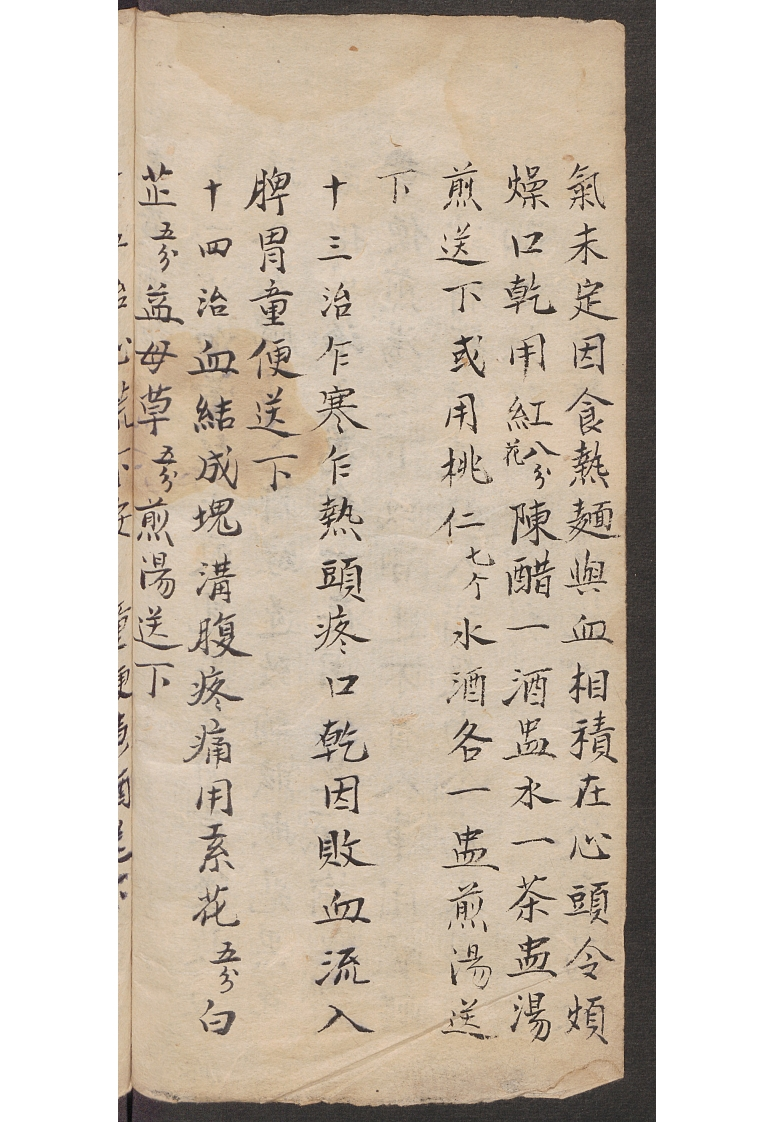 氣未定因食熱麵與血相積在心頭令煩
燥口乾用紅花八分陳醋一酒盅水一茶盅湯
煎送下或用桃仁七个水酒各一盅煎湯送
下
十三治乍寒乍熱頭疼口乾因敗血流入
脾胃童便送下
十四治血結成塊溝腹疼痛用紊花五分白
芷五分益母草五分煎湯送下